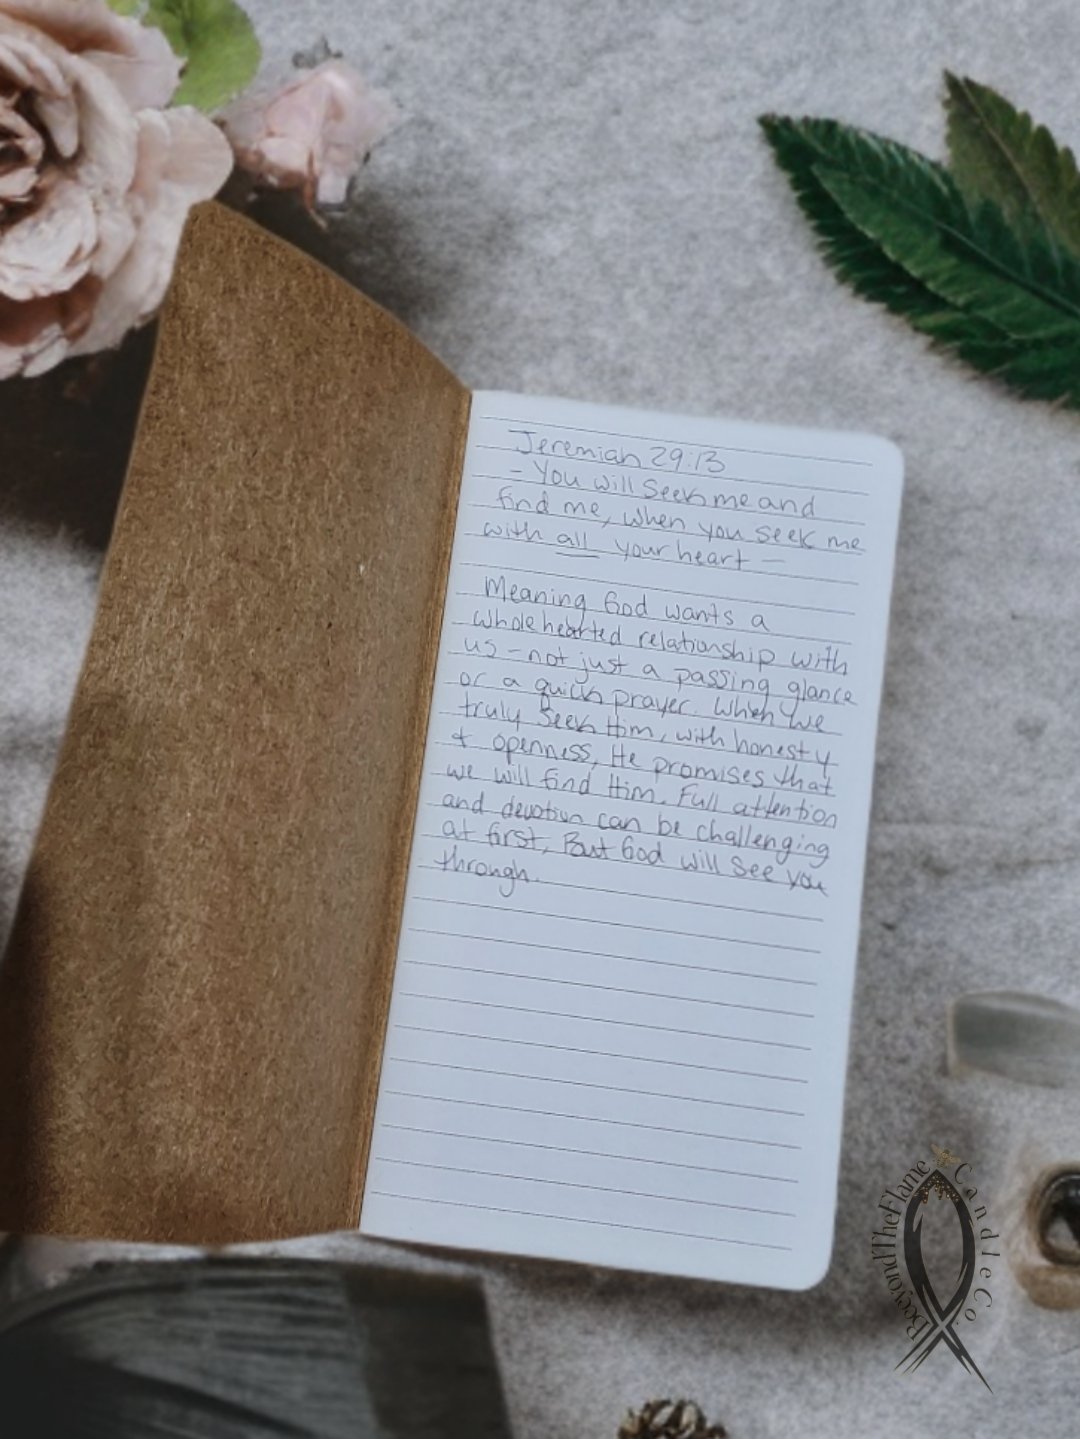 Jeremiah 29:13
- You will Seek me and
find me, when you seek me
with all your heart -
Meaning God wants a
wholehearted relationship with
us - not just a passing glance
or a quick prayer. When we
truly Seek Him, with honesty
& openness, He promises that
we will find Him. Full attention
and devotion can be challenging
at first, But God will see you
through.
BeeyondTheFlame
Candle Co.